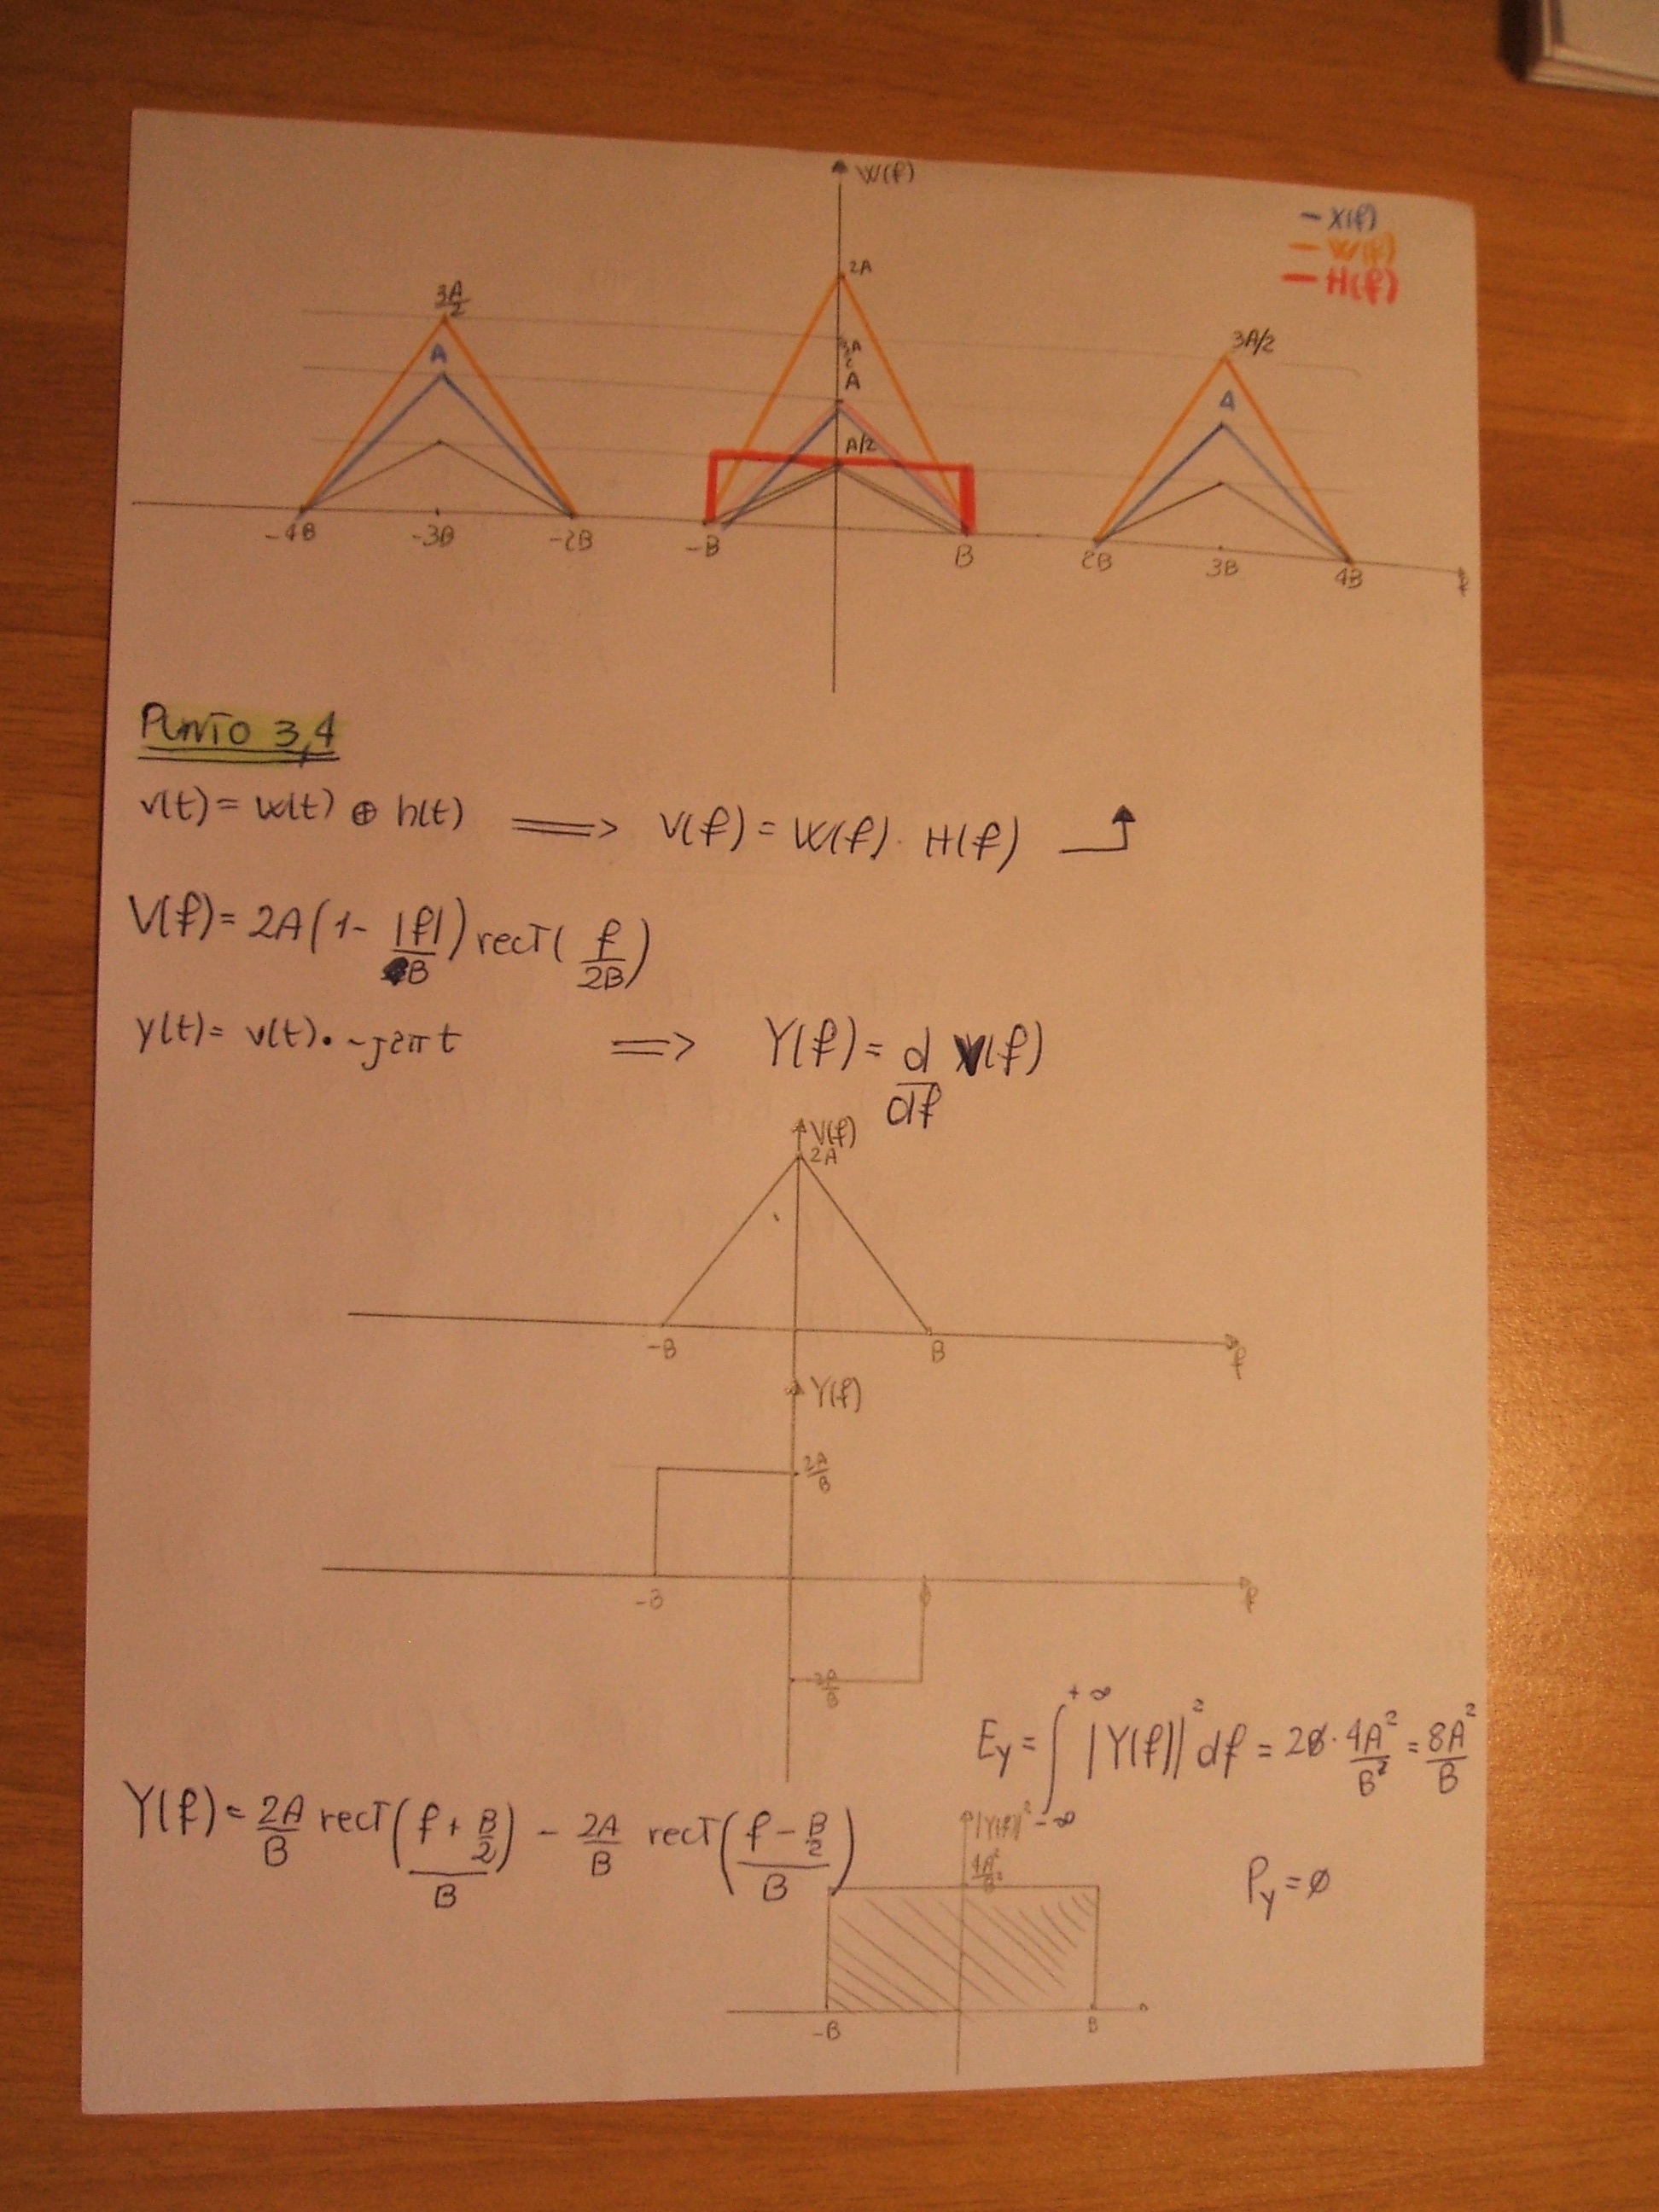 W(f)
– X(f)
– W(f)
– H(f)
2A
3A/2
3A/2
3A/2
A
A
A
A/2
-4B -3B -2B -B B 2B 3B 4B f
PUNTO 3,4
v(t) = w(t) ⊕ h(t) ⟹ V(f) = W(f) · H(f)
V(f) = 2A(1 - |f|/B) rect(f/2B)
y(t) = v(t) · -j2πt ⟹ Y(f) = d/df V(f)
V(f)
2A
-B B f
Y(f)
2A/B
-B f
-2A/B
E_y = ∫_{-∞}^{+∞} |Y(f)|² df = 2B · 4A²/B² = 8A²/B
Y(f) = 2A/B rect((f + B/2)/B) - 2A/B rect((f - B/2)/B)
|Y(f)|²
4A²/B²
P_y = ∅
-B B